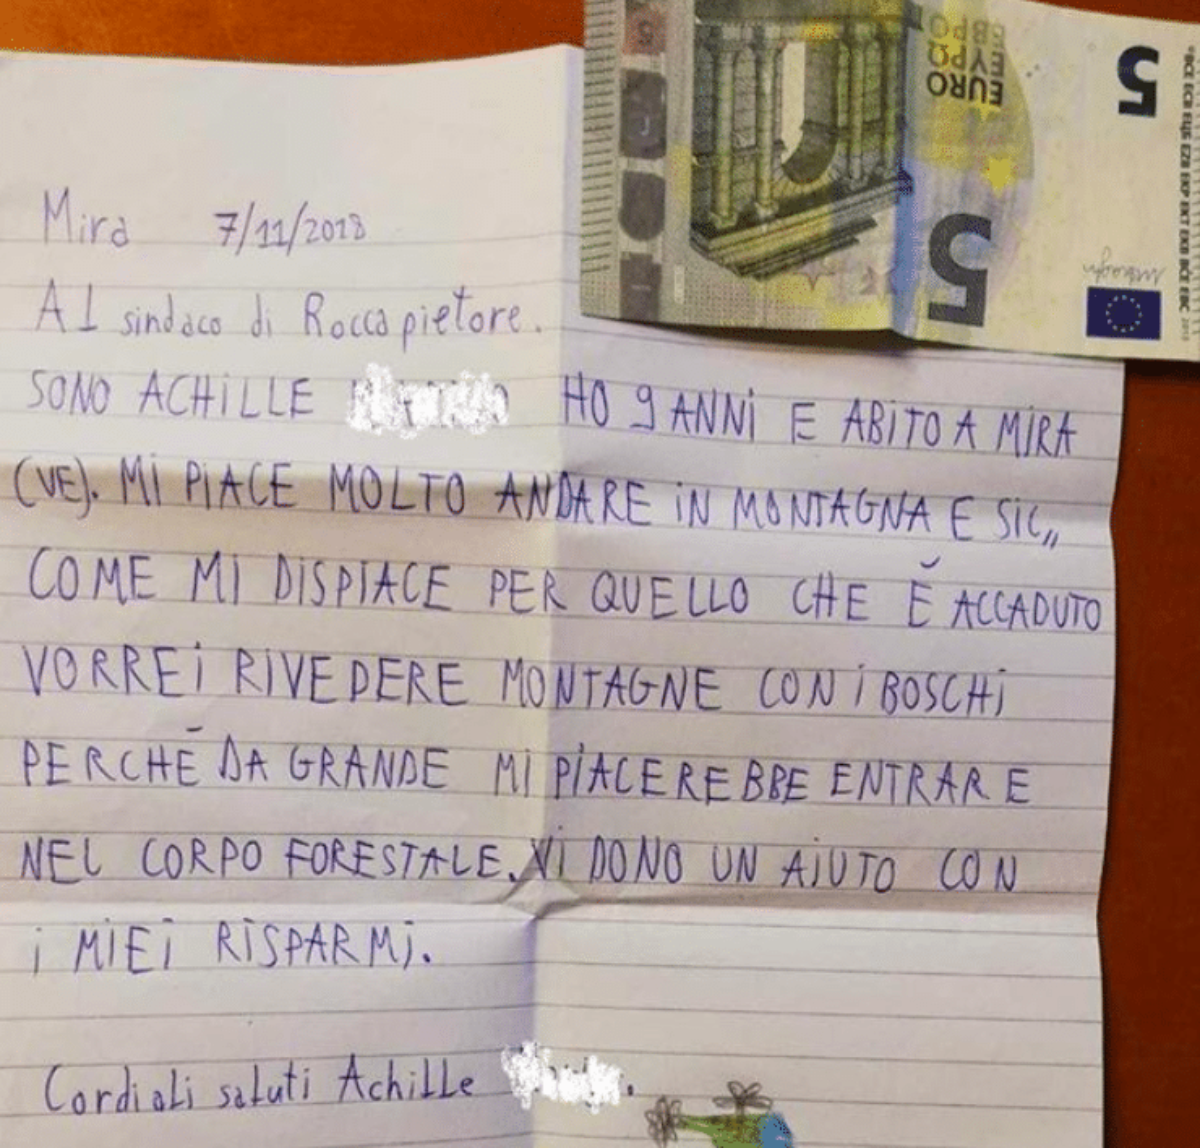 Mira 7/11/2018
Al sindaco di Rocca pietore.
SONO ACHILLE HO 9 ANNI E ABITO A MIRA
(VE). MI PIACE MOLTO ANDARE IN MONTAGNA E SIC,,
COME MI DISPIACE PER QUELLO CHE É ACCADUTO
VORREI RIVEDERE MONTAGNE CON I BOSCHI
PERCHÉ DA GRANDE MI PIACEREBBE ENTRARE
NEL CORPO FORESTALE. VI DONO UN AIUTO CON
I MIEI RISPARMI.
Cordiali saluti Achille
5
EURO
ΕΥΡΩ
ЕВРО
5